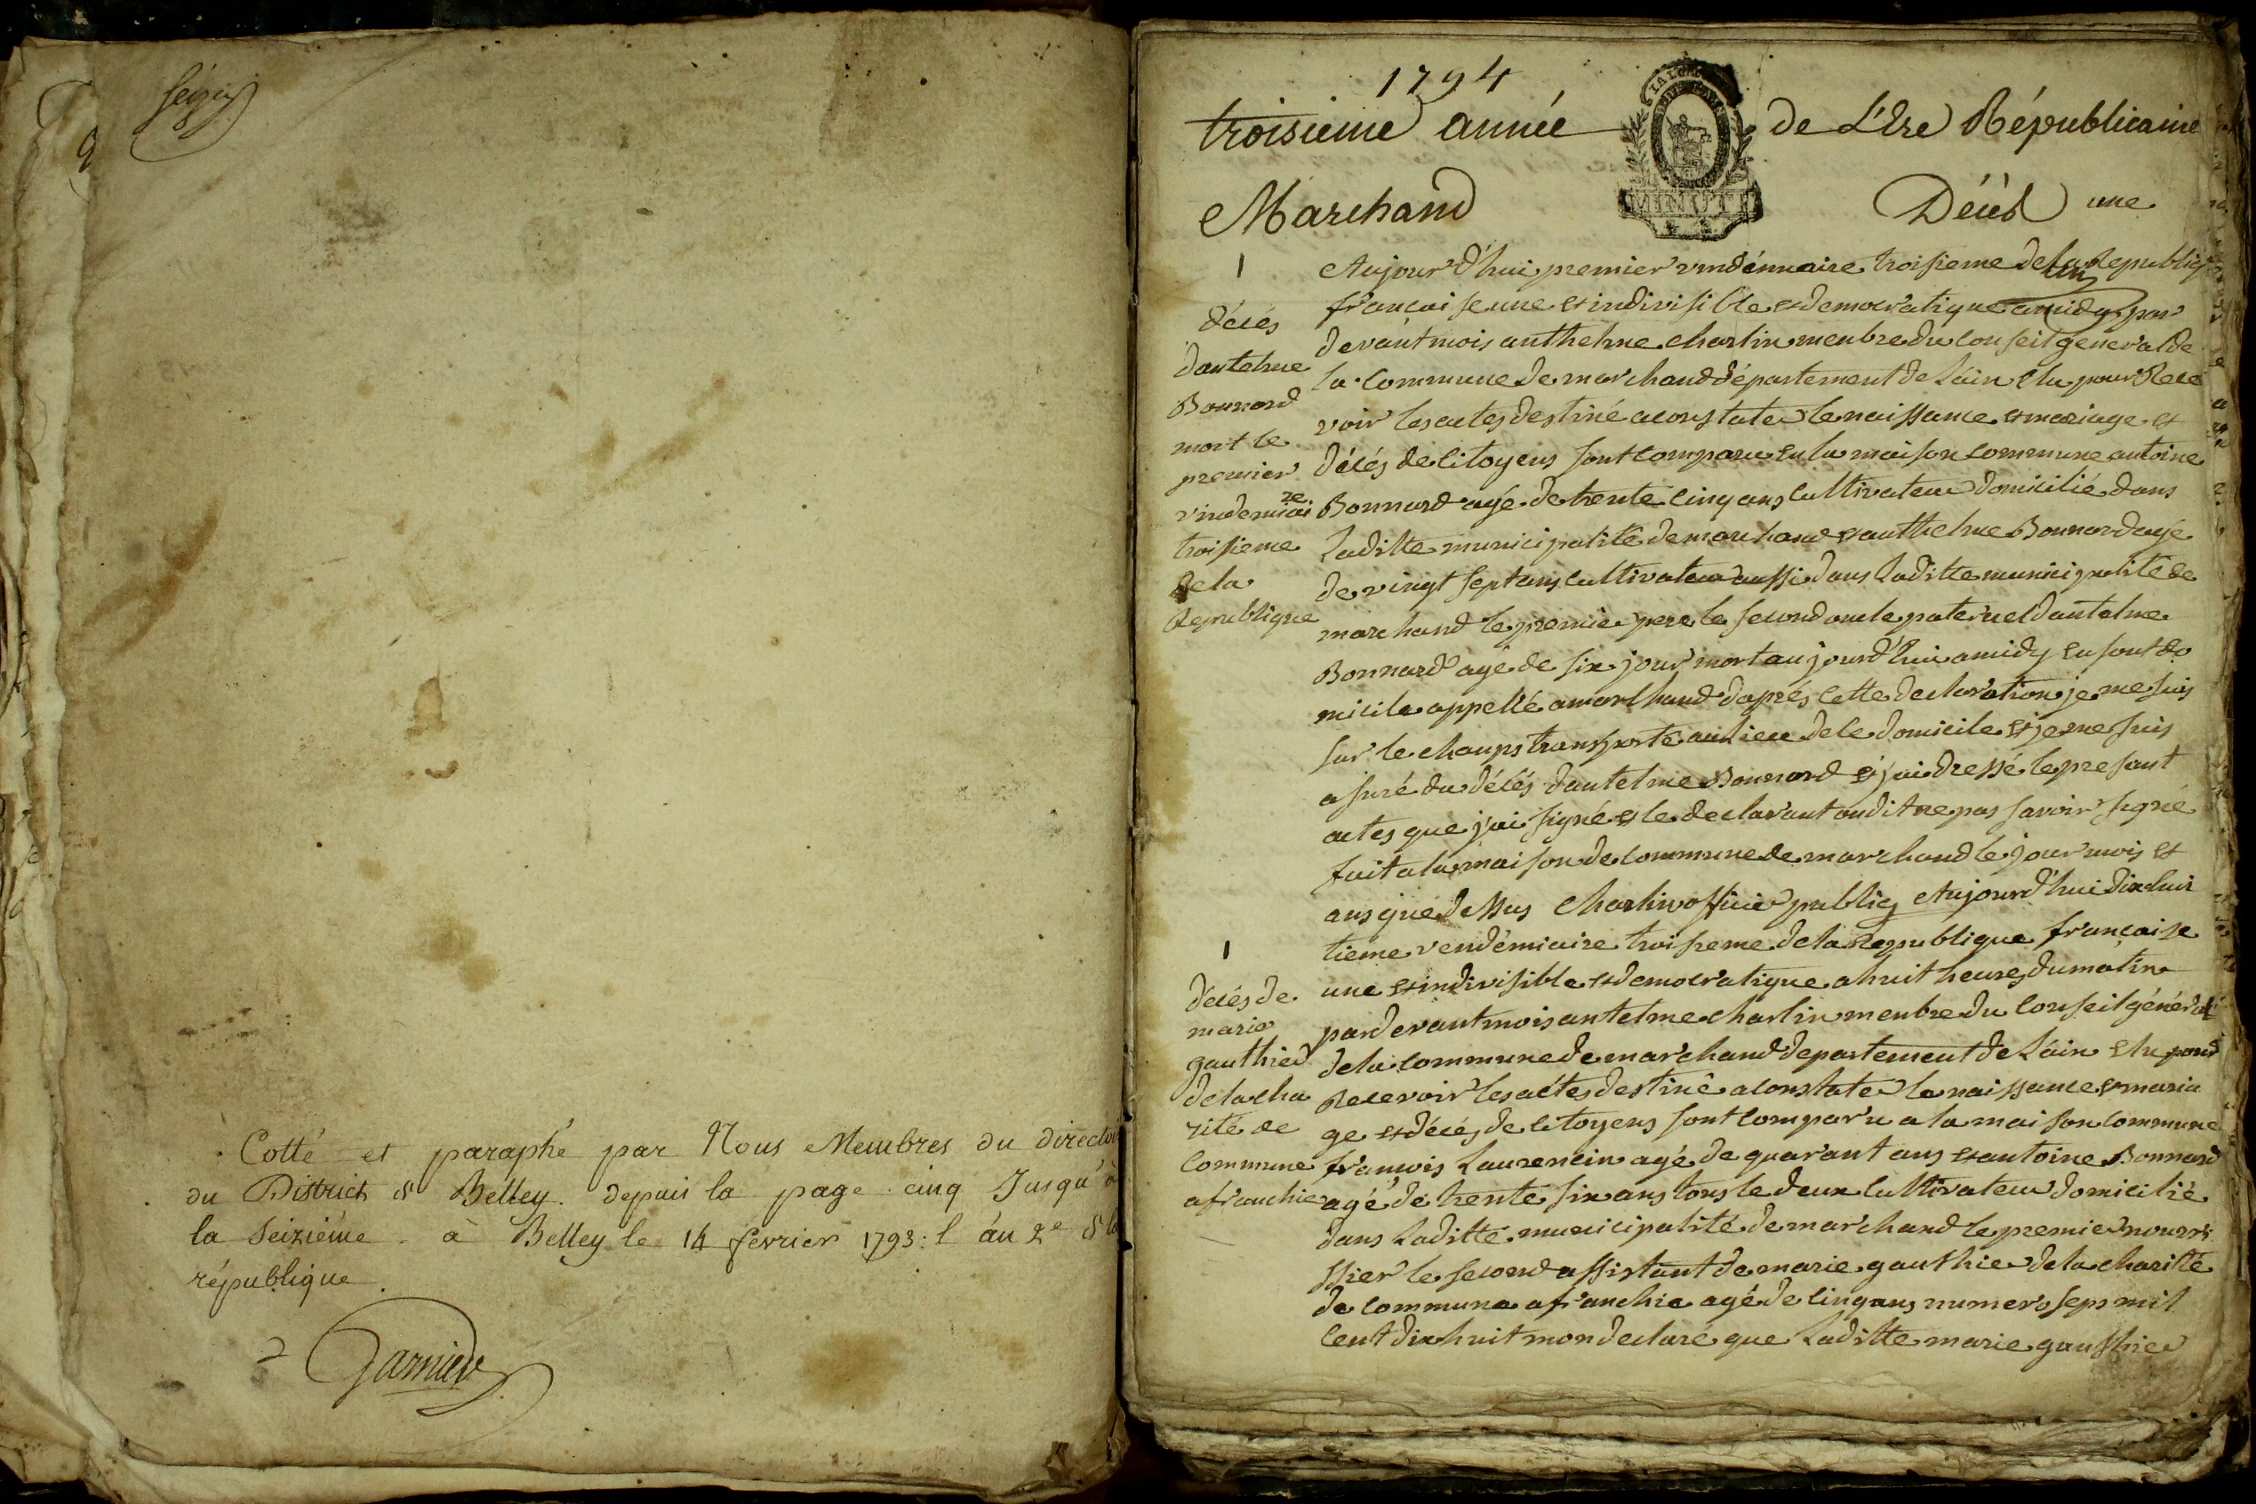 Seizie
Cotté et paraphé par Nous Membres du directoi
du District de Belley. depuis la page cinq Jusqu'à
la Seizième à Belley le 14 fevrier 1793: l'an 2e de la
république
Garnier
1794
troisieme année de L'Ere Républicaine
LA LOI
MINUTE
Marchand Décès une
1
décés
dantelme
Bonnard
mort le
premier
vindemiaire
troisieme
de la
Republique
Aujourd'hui premier vindémiaire troisieme de la Republiq
francaise une et indivisible et democratique a midy par
devant mois anthelme charlin menbre du conseil general de
la commune de marchand département de Láin élu pour Rece
voir les actes destiné a constater le naissance et mariage et
décés de citoyens sont comparu en la maison commune antoine
Bonnard agé de trente cinq ans cultivateur domicilié dans
Laditte municipalité de marchand et anthelme Bonnard agé
de vingt sept ans cultivateur aussi dans Laditte municipalité de
marchand le premie pere le second oncle paternel dantelme
Bonnard agé de six jour mort aujourd'hui a midy en sont do
micile appellé a marchand d'aprés cette declaration je me suis
sur le champs transporté au lieu de le domicile et je me suis
asuré du décés dantelme Bonnard et j'ai dressé le presant
actes que j'ai signé et le declarant on dit ne pas savoir signé
fait a la maison de commune de marchand le jour mois et
ans que dessus Charlin officier publiq Aujourd'hui dix hui
1
décés de
marie
gauthier
de la cha
rité de
commune
afranchie
tieme vendémiaire troisieme de la Republique francaise
une et indivisible et democratique a huit heures du matin
par devant mois antelme charlin menbre du Conseil général
de la commune de marchand departement de Láin élu pour
Recevoir les actes destiné a constater le naissance et maria
ge et décés de citoyens sont comparu a la maison commune
francois Laurencin agé de quarant ans et antoine Bonnard
agé de trente six ans tous le deux cultivateur domicilié
dans Laditte municipalité de marchand le premier nourri
ssier le second assistant de marie gauthier de la charité
de commune afranchie agé de cinq ans numero sept mil
cent dix huit mon declaré que Laditte marie gauthier